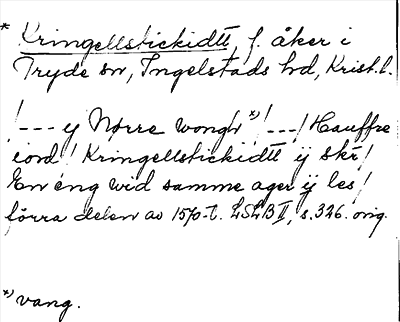 * Kringellstickidtt, f. åker i
Tryde sn, Ingelstads hd, Krist. l.
/--- y Nørre wongh *) /---/ Hauffre
iord / Kringellstickidtt ij skr /
En eng wid samme ager ij les /
förra delen av 1570-t. LSLB II, s. 326. orig.
*) vang.